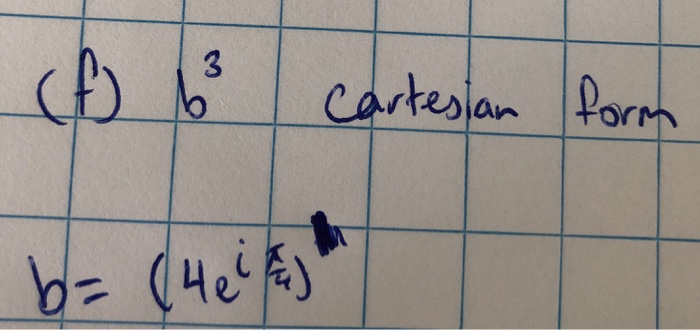 (f) b³ Cartesian form
b = (4e^{i π/4})